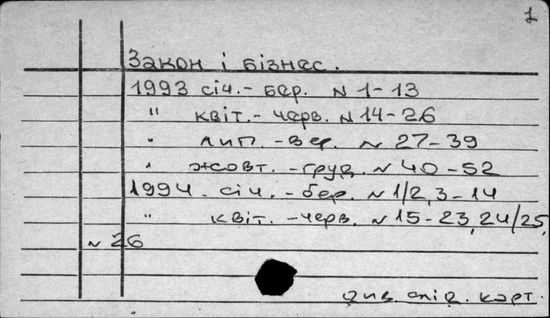 1
Закон і бізнес.
1993 січ.- бер. N 1-13
" квіт.- черв. N 14-26
" лип.-вер. N 27-39
" жовт.-груд. N 40-52
1994. січ.-бер. N 1/2, 3-14
" квіт.-черв. N 15-23, 24/25,
N 26
див. слід. карт.